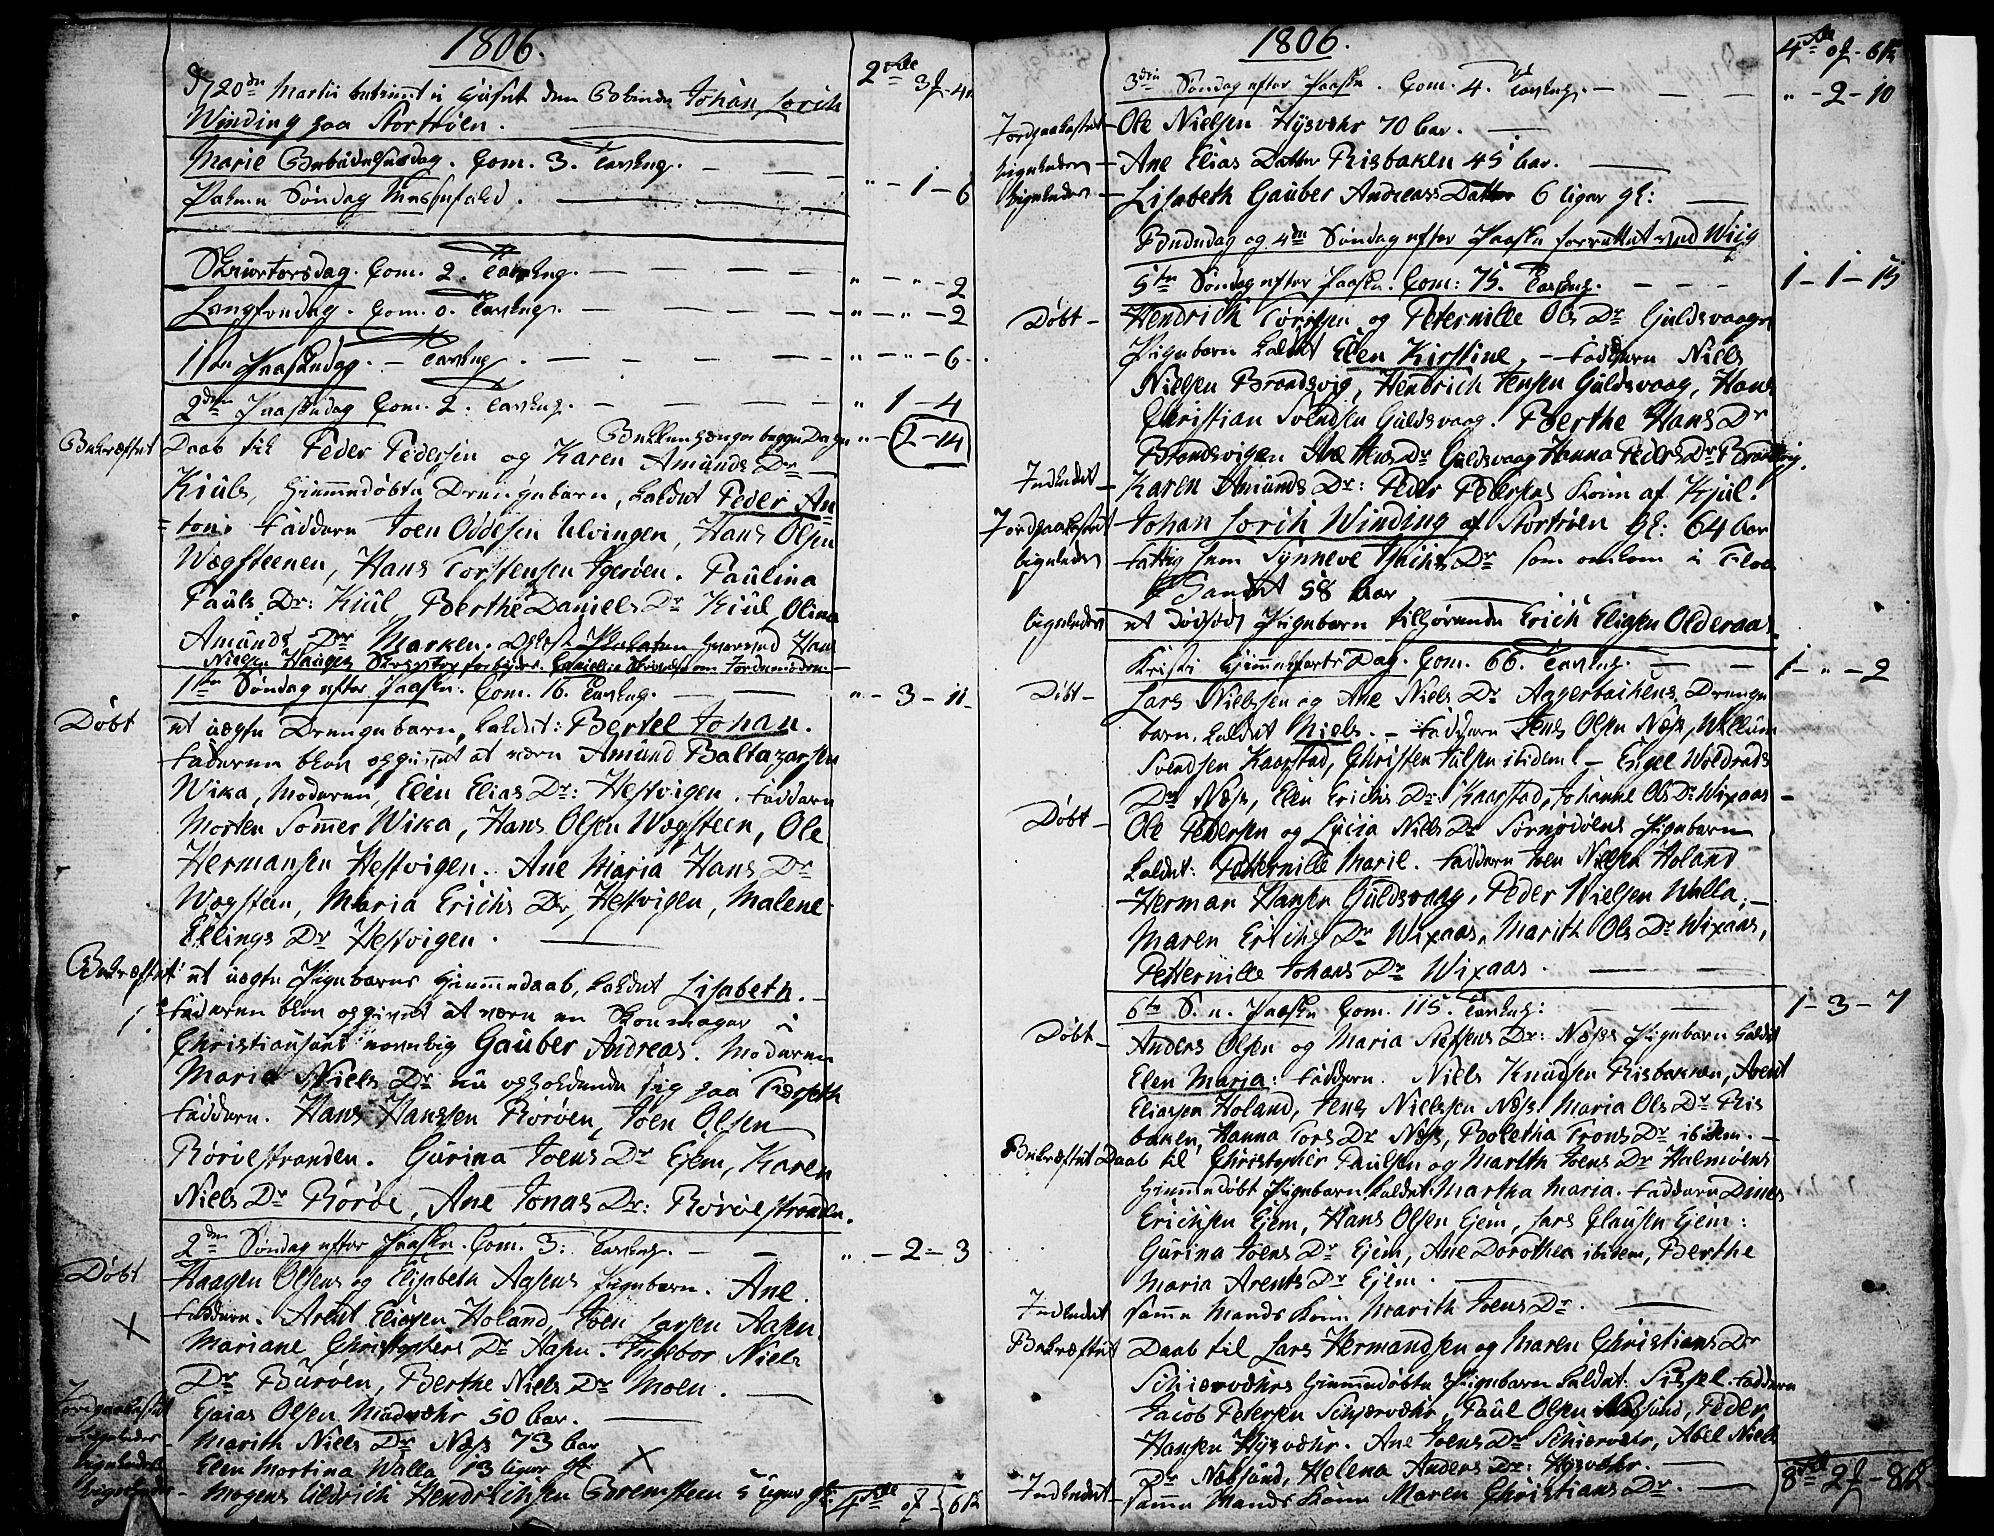 1806.
2 rdl 3 ℥ - 4
D/ 20de Martii Johan Lorich
Winding paa Stortröen.
Marie Bebudelsesdag. Com. 3. Tavlens.
„ - 1 - 6
Palme Söndag Messefald.
Skiertorsdag. Com. 2. Tavleng.
„ - „ - 2
Langfredag. Com. 0. Tavleng.
„ - „ - 2
1ste Paaskedag. - Tavleng.
„ - „ - 6
2den Paaskedag Com. 2. Tavleng.
„ 1 - 4
Bekkenpenger begge Dage „ - 2 - 14
Bekræftet Daab til Peder Pedersen og Karen Amunds Dr
Kiüls, hiemmedøbte Drengebarn, kaldet Peder An
=ton. Faddere Joen Oddesen Ulvingen, Hans Olsen
Wægsteenen, Hans Torstensen Igeröen. Paulina
Pauls Dr: Kiül, Berthe Daniels Dr Kiül, Olina
Amunds Dr Marken.
Nielsen Haugen
1ste Söndag efter Paaske. Com. 16. Tavleng.
„ - 3 - 11
Döbt et uægte Drengebarn, kaldet: Bertel Johan.
Faderen blev opgivet at være Amund Baltazarsen
Wika, Moderen, Elen Elias Dr: Hestvigen. Faddere
Morten Sommer Wika, Hans Olsen Wægsteen, Ole
Hermansen Hestvigen. Ane Maria Hans Dr
Wægsteen, Maria Erichs Dr, Hestvigen, Malene
Ellings Dr Hestvigen.
Bekræftet et uægte Pigebarns hiemmedaab, kaldet Lisabeth.
Faderen blev opgivet at være en Skomager i
Christiansund navnlig Gauber Andreas. Moderen
Maria Niels Dr nu opholdende sig paa Færseth
Faddere. Hans Hanssen Röröen, Joen Olsen
Röröestranden. Gurina Joens Dr Ejem, Karen
Niels Dr Röröe, Ane Jonas Dr: Röröestranden.
2den Söndag efter Paaske. Com. 3: Tavleng.
„ - 2 - 3
Döbt Haagen Olsens og Elisabeth Aasens Pigebarn. Ane.
Faddere. Arent Eliasen Holand, Joen Larsen Aasen
Mariane Christophers Dr Aasen. Ingebor Niels
Dr Buröen, Berthe Niels Dr Moen.
Jordpaakastet Esaias Olsen Madvæhr 50 Aar.
ligeledes Marith Niels Dr Næss 73 Aar
ligeledes Elen Martina Walla 13 Uger gl
ligeledes Mogens Hendrichsen Bremsteen 5 Uger gl:
4 rdl 0℥ - 6 ſk
1806.
4 rdl 0℥ - 6 ſk
3die Söndag efter Paaske. Com. 4. Tavleng.
„ - 2 - 10
Jordpaakastet Ole Nielsen Hysvæhr 70 Aar.
ligeledes Ane Elias Datter Risbaken 45 Aar.
ligeledes Lisabeth Gauber Andreas Datter 6 Uger gl:
Bededag og 4de Söndag efter Paaske forrettet ved Wiig
5te Söndag efter Paaske. Com: 75. Tavleng.
1 - 1 - 15
Döbt Hendrich Toritsen og Peternille Ols Dr Guldsvaagens
Pigebarn kaldet Elen Kirstine. - Faddere Niels
Nielsen Brandsvig, Hendrich Jensen Guldsvaag, Hans
Christian Svendsen Guldsvaag. Berthe Hans Dr
Brandsvigen Ane Hens Dr Guldsvaag Hanna Peders Dr Brandsvig.
Indledet Karen Amunds Dr: Peder Pedersens Kone af Kjül.
Jordpaakastet Johan Lorich Winding af Stortröen gl: 64 Aar
ligeledes Fattig Lem Synneve Dr som omkom i Floe
58 Aar
ligeledes et dödfödt Pigebarn tilhörende Erich Eliasen Olderaas.
Kristi Himmelfarts Dag. Com. 66. Tavleng.
1 - „ - 2
Döbt Lars Nielssen og Ane Niels Dr Aagerbachens Drenge
barn, kaldet Niels. - Faddere Jens Olsen Næss, Willum
Svendsen Kaarstad, Christen Julsen ibidem - Engel Woldrads
Dr Næss, Elen Erichs Dr Kaarstad, Johanne Ols Dr Wixaas
Döbt Ole Pedersen og Lucia Niels Dr Sörnödöens Pigebarn
kaldet: Petternille Marie. Faddere Joen Nielsen Holand
Herman Hansen Guldsvaag, Peder Nielsen Walla, -
Maren Erichs Dr Wixaas, Marith Ols Dr Wixaas,
Petternille Johans Dr Wixaas.
6te S. e. Paaske Com. 115. Tavleng:
1 - 3 - 7
Döbt Anders Olsen og Maria Steffens Dr: Næss Pigebarn kaldet
Elen Maria: Faddere. Niels Knudsen Risbakken, Arent
Eliassen Holand, Jens Nielssen Næss. Maria Ols Dr Ris
baken, Hanna Tors Dr Næss, Boletha Trons Dr ibidem.
Bekræftet Daab til Christopher Paulsen og Marith Joens Dr Halmöens
hiemmedøbt Pigebarn kaldet Martha Maria. Faddere Dines
Erichsen Ejem, Hans Olsen Ejem, Lars Clausen Ejem:
Gurina Joens Dr Ejem, Ane Dorothea ibidem, Berthe
Maria Arents Dr Ejem.
Indledet samme Mands Kone Marith Joens Dr.
Bekræftet Daab til Lars Hermandsen og Maren Christians Dr
Schiervæhrs hiemmedøbte Pigebarn kaldet: Sissel. Faddere
Jacob Petersen Schiærvæhr, Paul Olsen Nævsund, Peder
Hansen Hysvæhr. Ane Joens Dr Schiervæhr, Abel Niels
Dr Nævsund, Helena Anders Dr: Hysvæhr.
Indledet samme Mands Kone Maren Christians Dr.
8 rdl 2℥ - 8 ſk